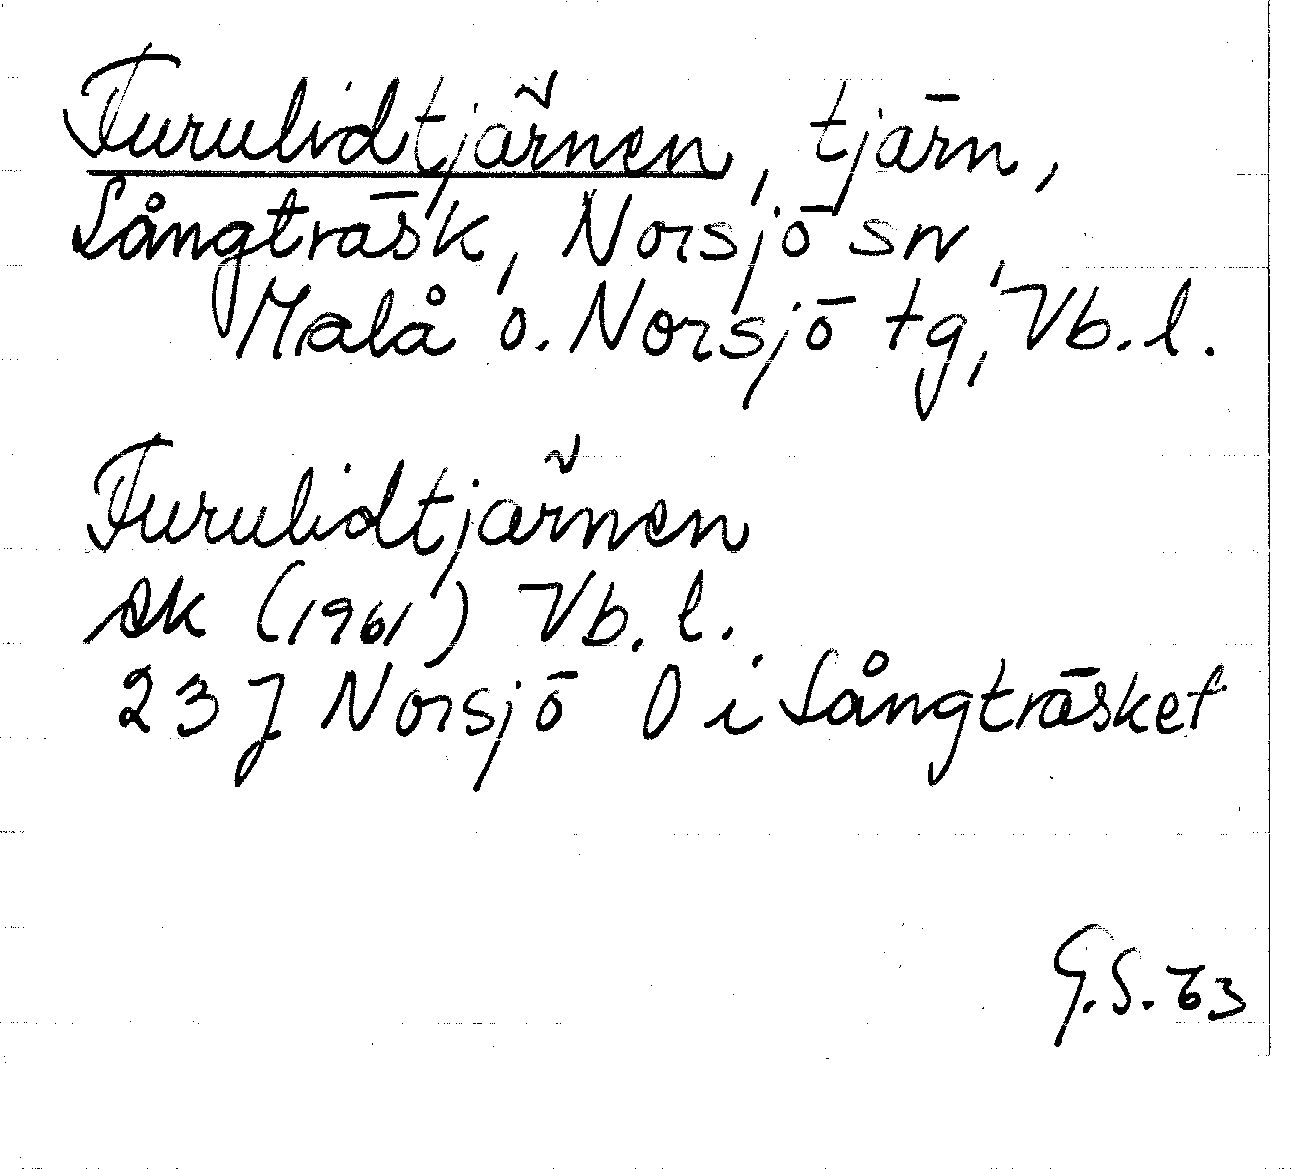 Furulidtjärnen, tjärn,
Långträsk, Norsjö sn,
Malå o. Norsjö tg, Vb. l.
Furulidtjärnen
ek (1961) Vb. l.
23 J Norsjö O i Långträsket
G.S. 63